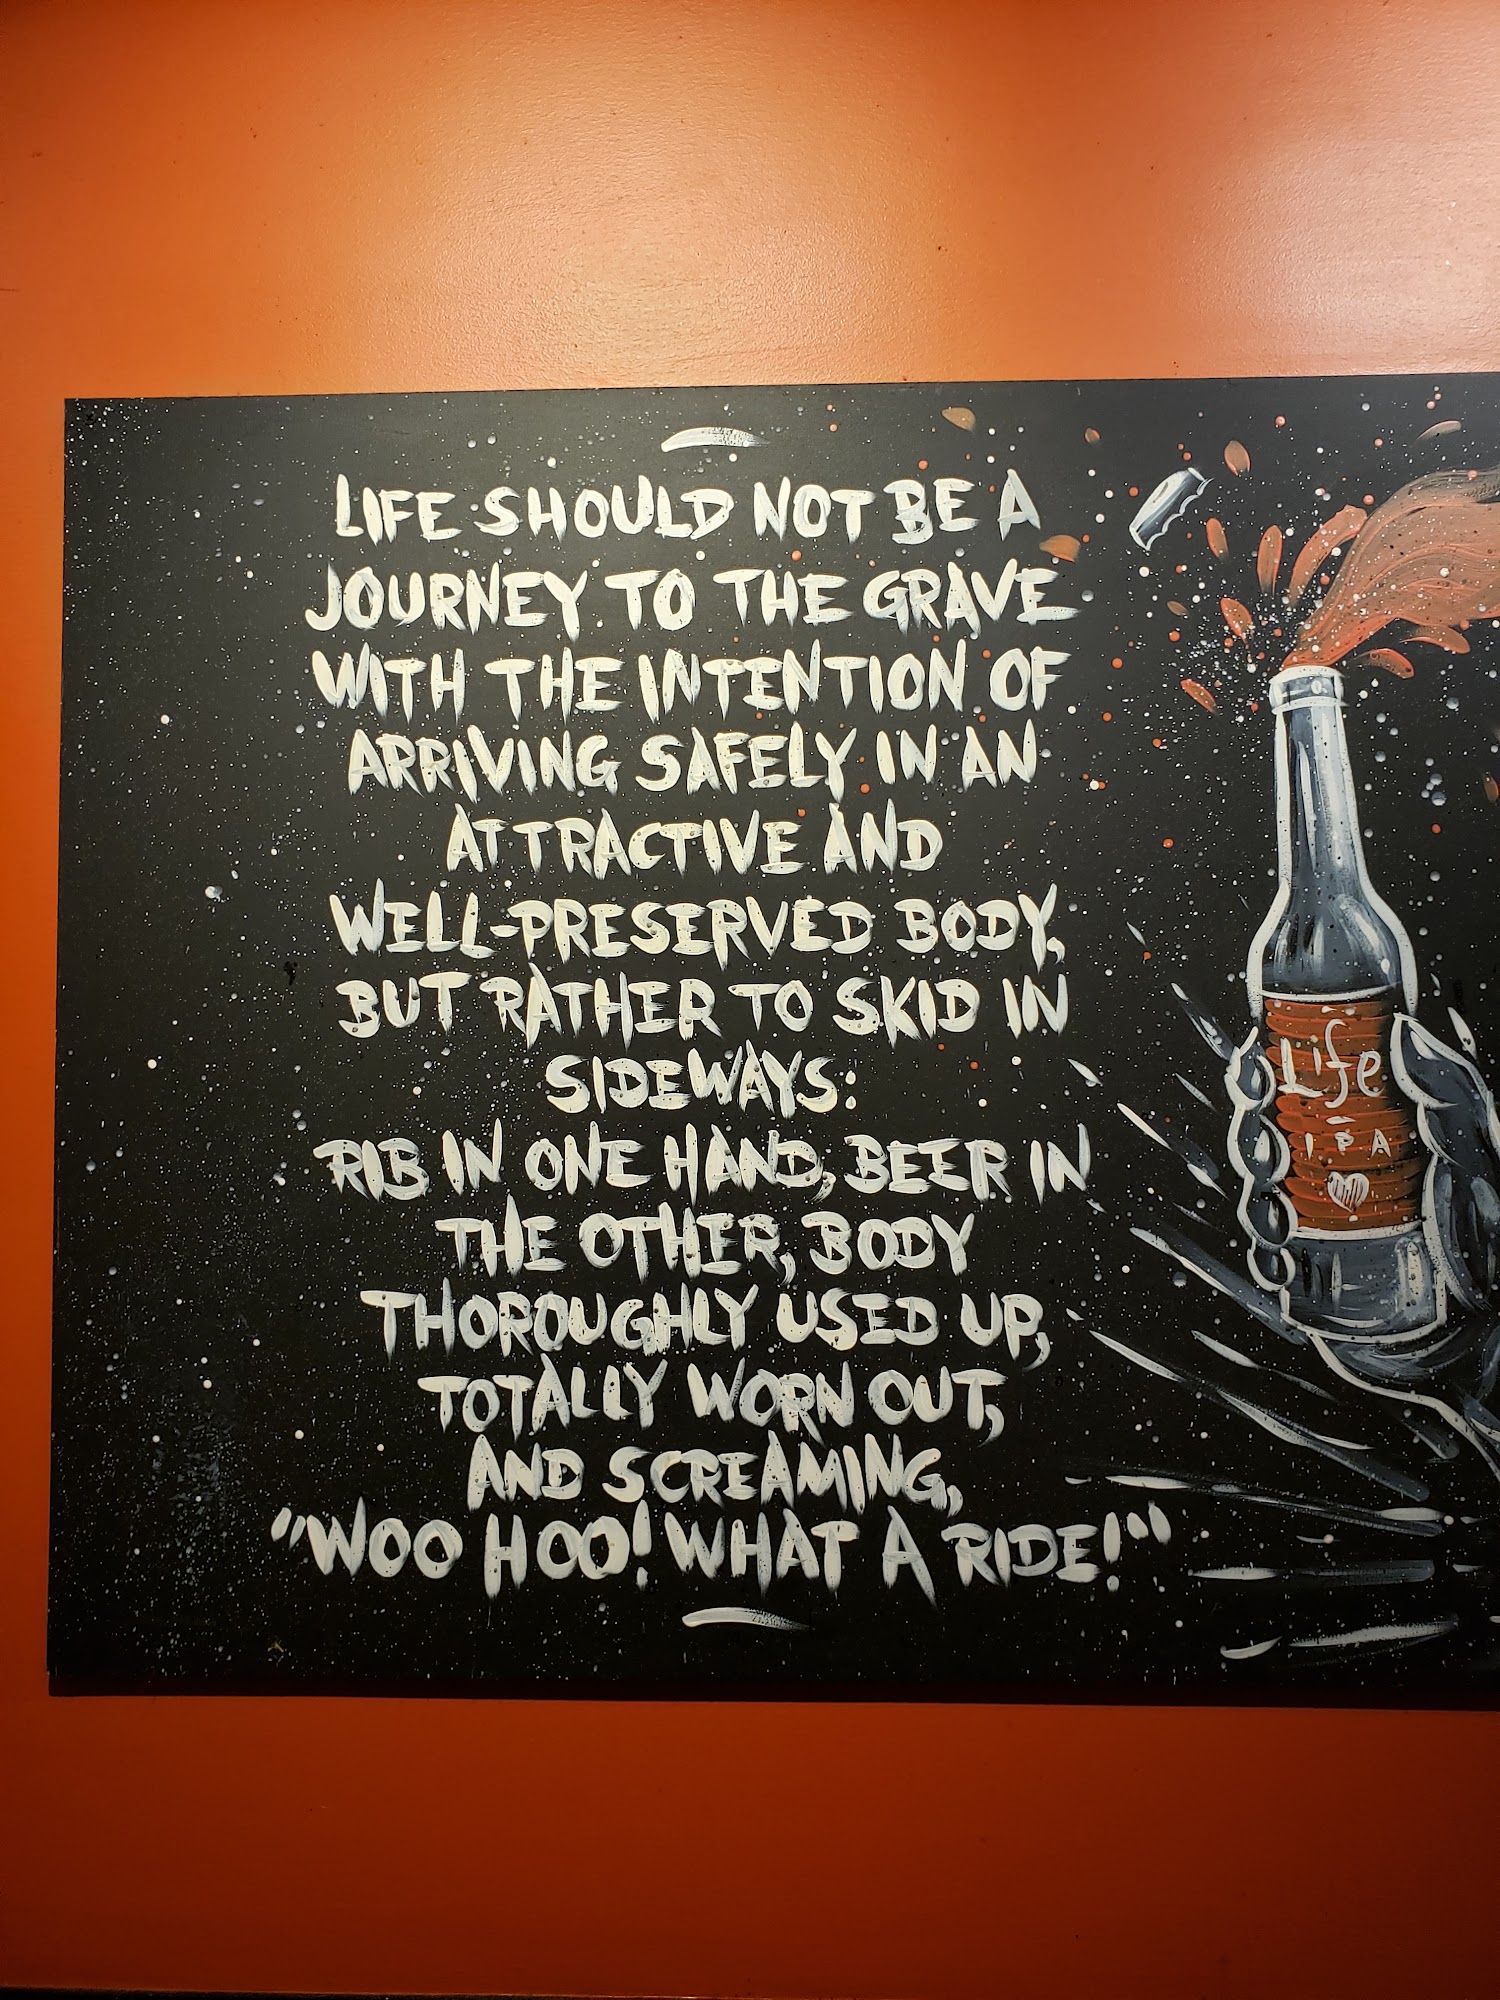 LIFE SHOULD NOT BE A
JOURNEY TO THE GRAVE
WITH THE INTENTION OF
ARRIVING SAFELY IN AN
ATTRACTIVE AND
WELL-PRESERVED BODY,
BUT RATHER TO SKID IN
SIDEWAYS:
RIB IN ONE HAND, BEER IN
THE OTHER, BODY
THOROUGHLY USED UP,
TOTALLY WORN OUT,
AND SCREAMING,
"WOO HOO! WHAT A RIDE!"
Life
IPA